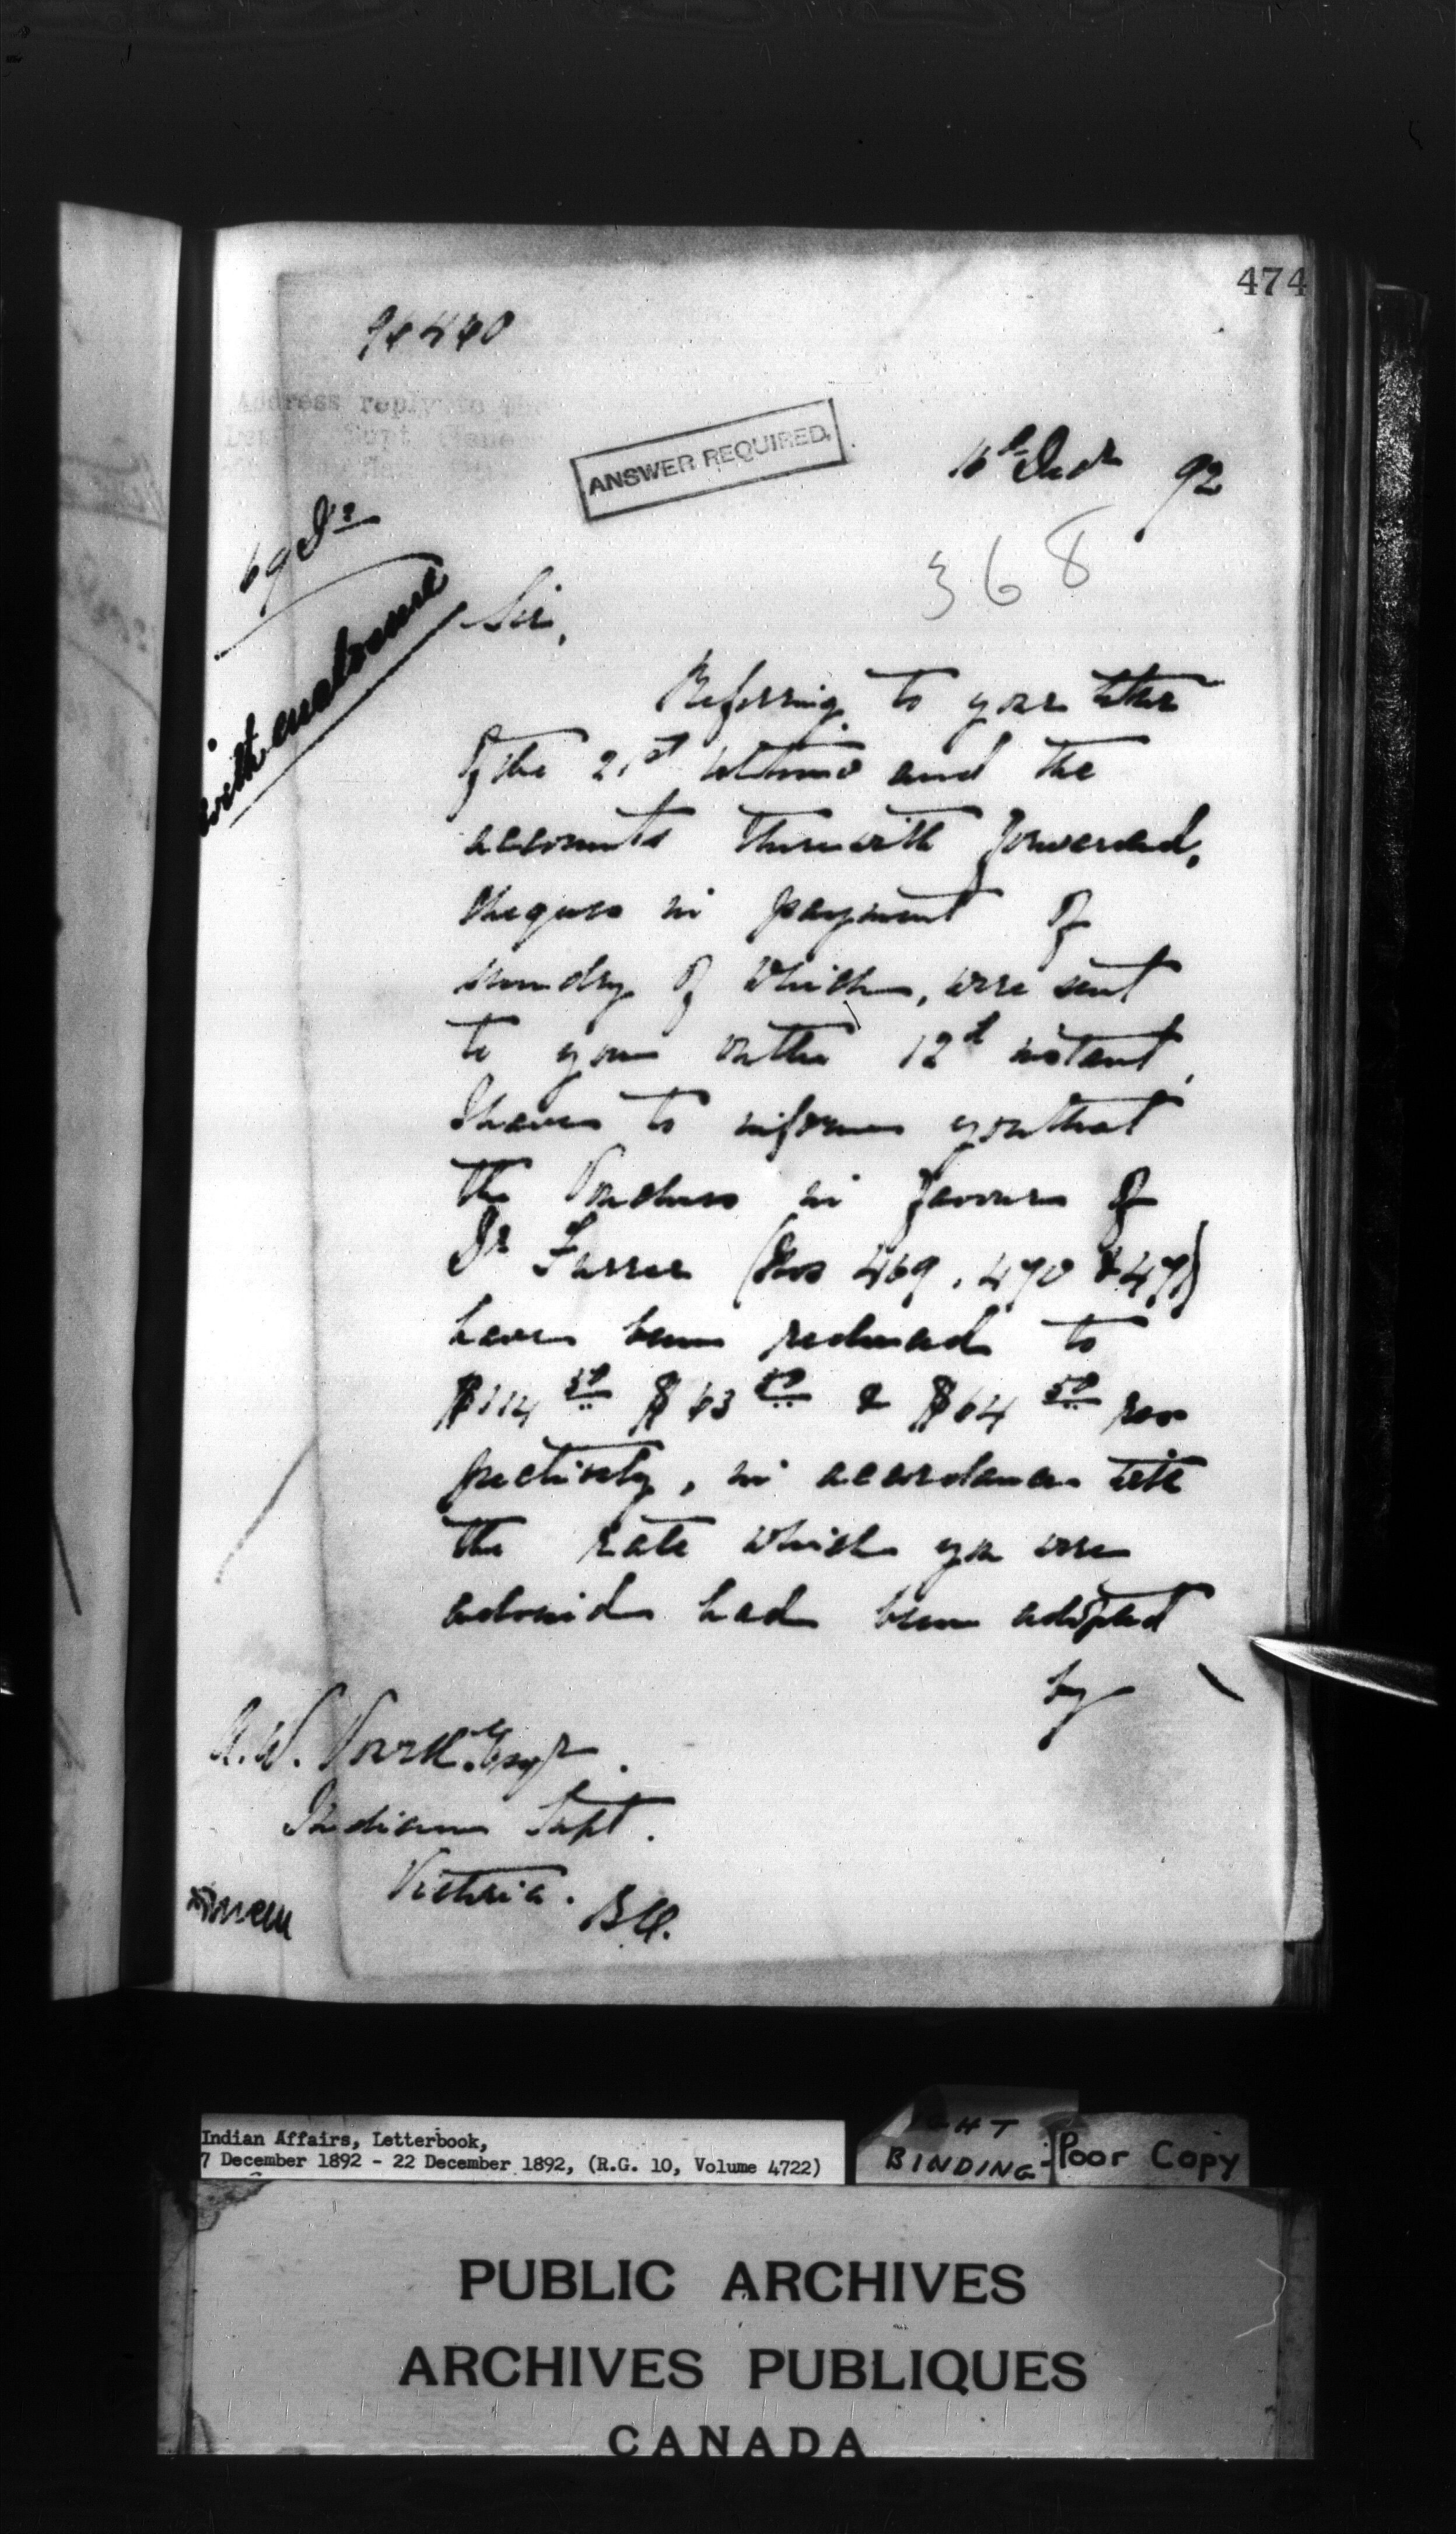 474
Address reply to the
ANSWER REQUIRED.
16th Decr 92
368
Sir,
with enclosure
Referring to your letter
of the 21st ultimo and the
accounts therewith forwarded,
cheques in payment of
sundry of which, were sent
to you on the 12th instant,
I have to inform you that
the Vouchers in favour of
Dr (Nos 469, 470 & 471)
have been reduced to
$114 50 $63 50 & $64 50 res
pectively, in accordance with
the rate which you were
advised had been adopted
by
A. W. Vowell Esqr.
Indian Supt.
Victoria. B.C.
Indian Affairs, Letterbook,
7 December 1892 - 22 December 1892, (R.G. 10, Volume 4722)
BINDING
Poor Copy
PUBLIC ARCHIVES
ARCHIVES PUBLIQUES
CANADA